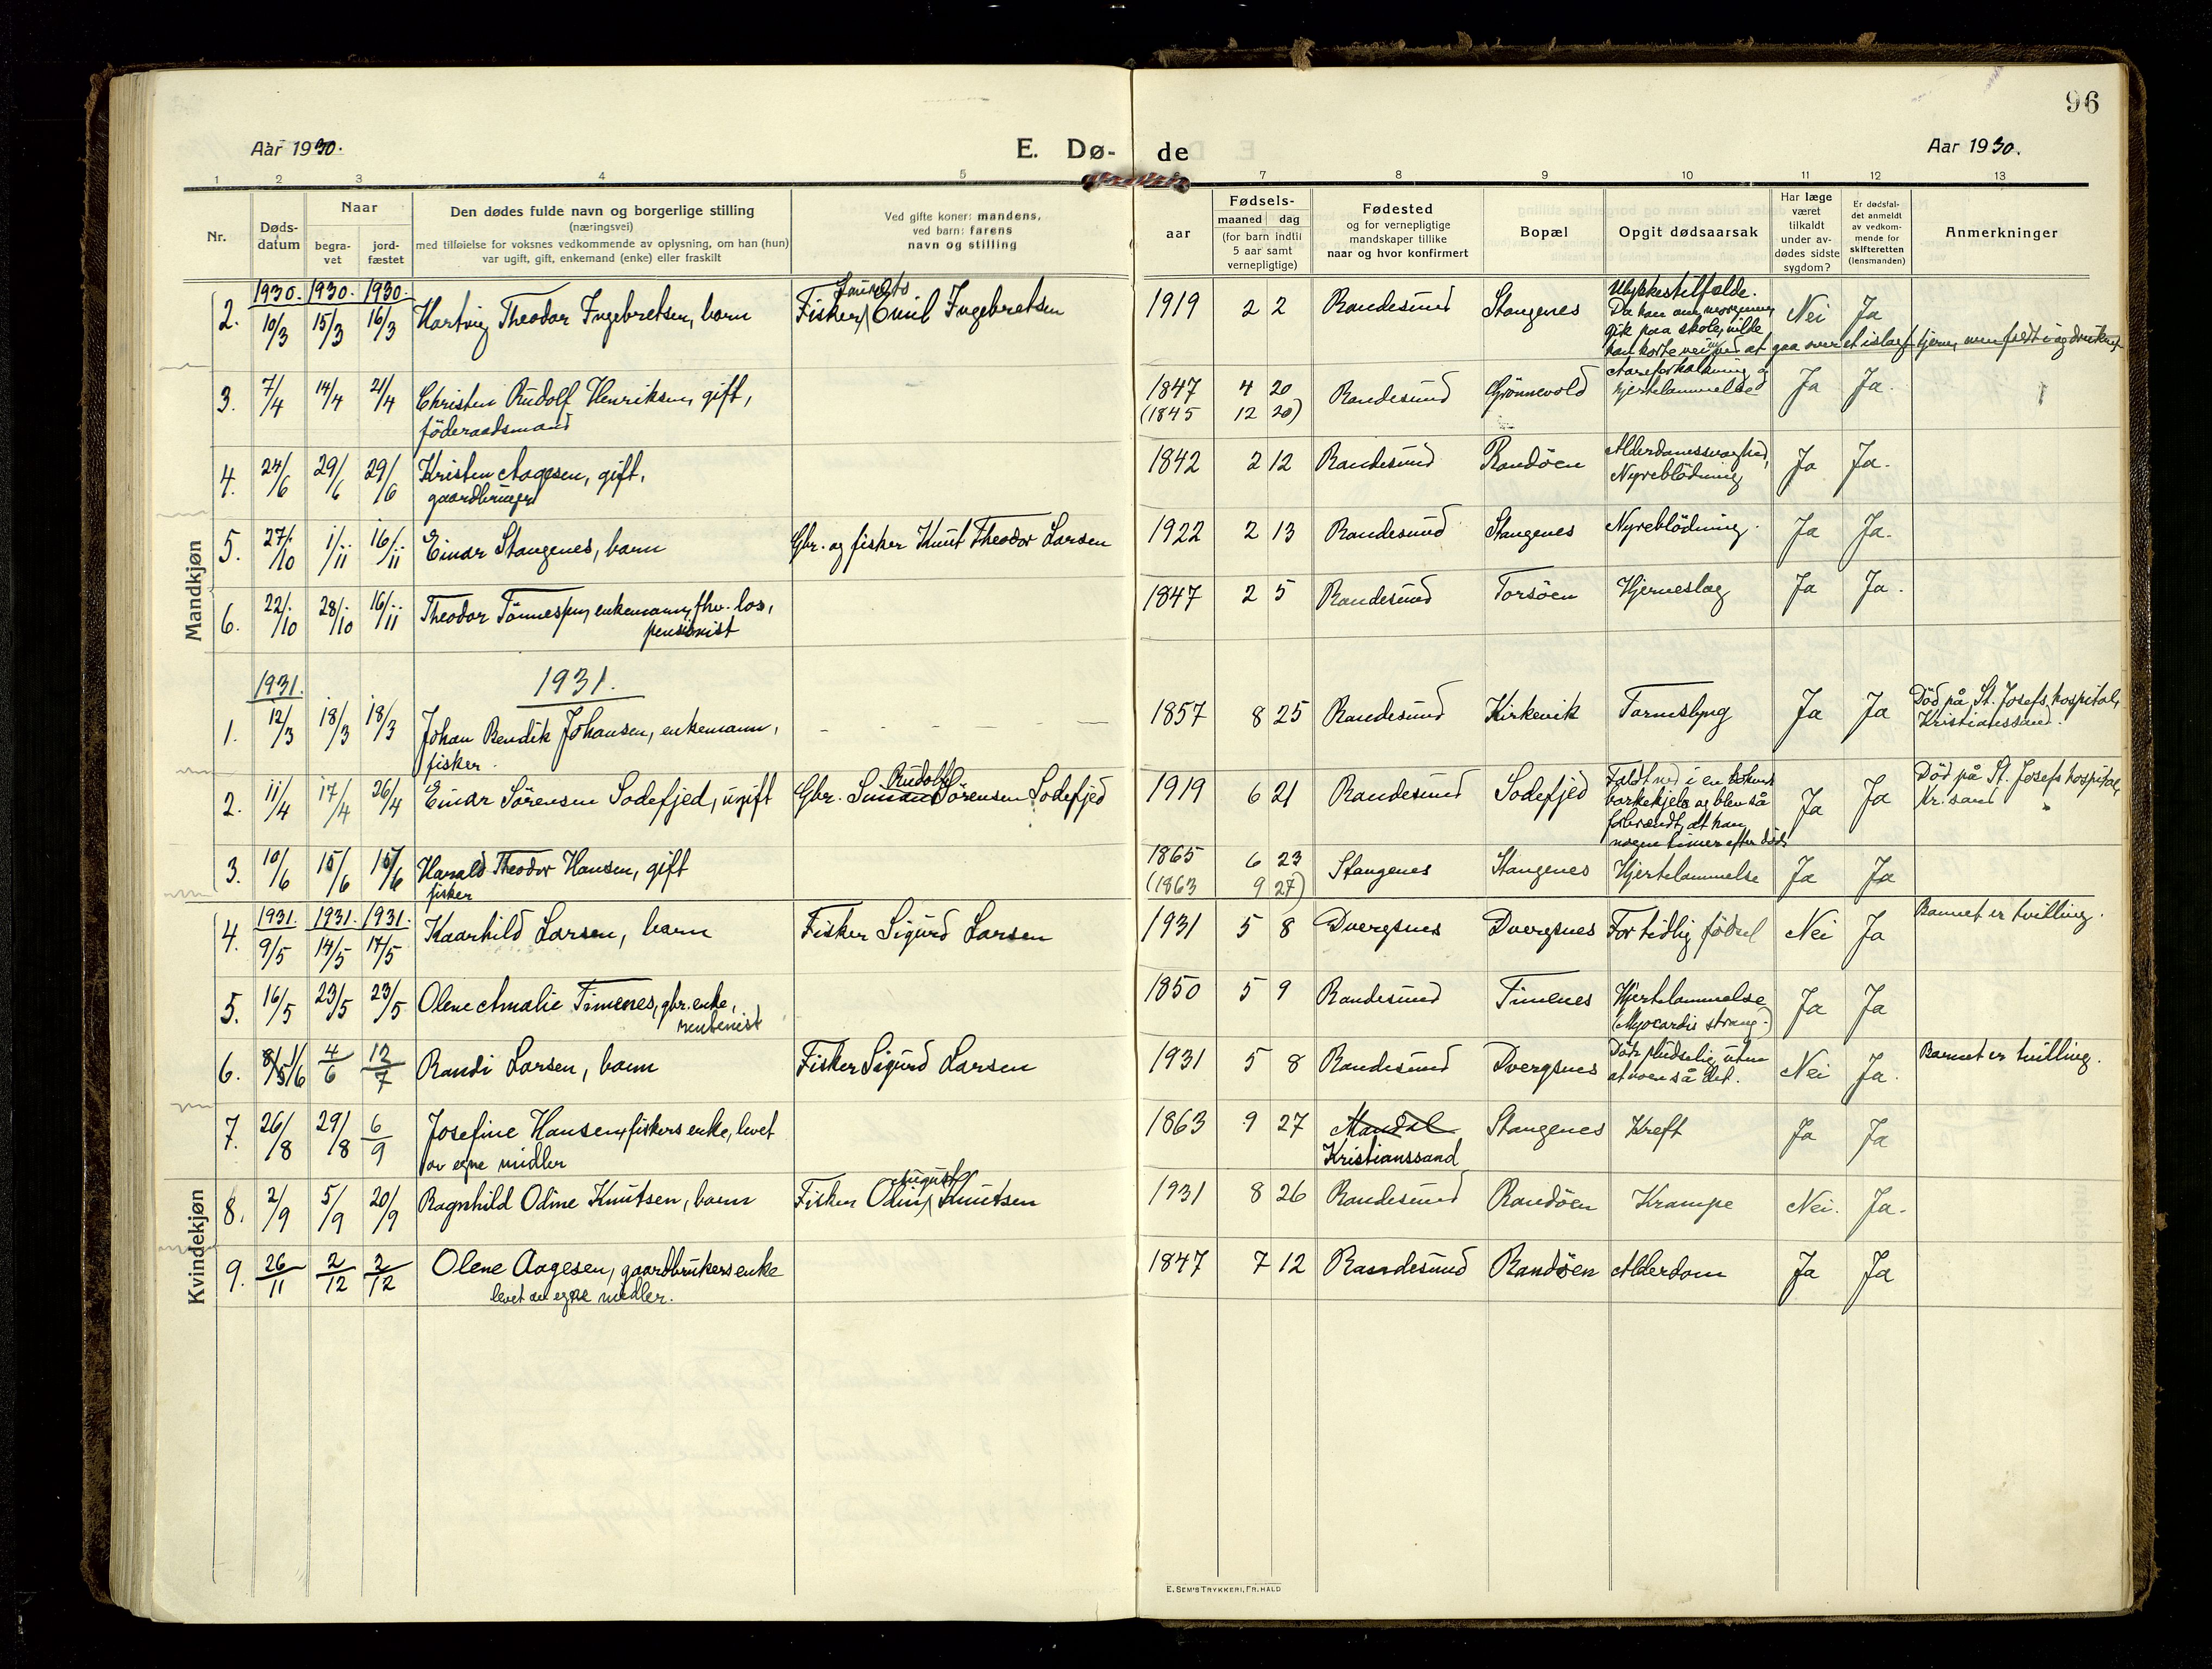 96
Aar 1930.
E. Dø-
de
Aar 1930.
1 2 3 4 5 7 8 9 10 11 12 13
Nr.
Døds-
datum
Naar
begra-
vet
jord-
fæstet
Den dødes fulde navn og borgerlige stilling
(næringsvei)
med tilføielse for voksnes vedkommende av oplysning, om han (hun)
var ugift, gift, enkemand (enke) eller fraskilt
Ved gifte koner: mandens,
ved barn: farens
navn og stilling
aar
Fødsels-
maaned dag
(for barn indtil
5 aar samt
vernepligtige)
Fødested
og for vernepligtige
mandskaper tillike
naar og hvor konfirmert
Bopæl
Opgit dødsaarsak
Har læge
været
tilkaldt
under av-
dødes sidste
sygdom?
Er dødsfal-
det anmeldt
av vedkom-
mende for
skifteretten
(lensmanden)
Anmerkninger
Mandkjøn
1930. 1930. 1930.
2. 10/3 15/3 16/3 Hartvig Theodor Ingebretsen, barn
Lauritz
Fisker Emil Ingebretsen
1919 2 2 Randesund Stangenes
Ulykkestilfælde.
Da han om morgenen
gik paa skole, vilde
han korte veien ved at gaa over et islagt tjern, men faldt i og druknet
Nei Ja
3. 7/4 14/4 21/4 Christen Rudolf Henriksen, gift,
föderaadsmand
1847 4 20 Randesund Grönnevold
(1845 12 20)
Aareforkalkning og
hjertelammelse
Ja Ja.
4. 24/6 29/6 29/6 Kristen Aagesen, gift,
gaardbruger
1842 2 12 Randesund Randöen
Alderdomssvaghed,
Nyreblödning
Ja Ja.
5. 27/10 1/11 16/11 Einar Stangenes, barn Gbr. og fisker Knut Theodor Larsen
1922 2 13 Randesund Stangenes Nyreblödning. Ja Ja.
6. 22/10 28/10 16/11 Theodor Tönnesen, enkemann, fhv. los,
pensionist
1847 2 5 Randesund Torsöen Hjerneslag Ja Ja.
1931. 1931.
1. 12/3 18/3 18/3 Johan Bendik Johansen, enkemann,
fisker.
1857 8 25 Randesund Kirkevik Tarmslyng Ja Ja
Död på St. Josefs hospital,
Kristianssand.
2. 11/4 17/4 26/4 Einar Sörensen Sodefjed, ugift
Rudolf
Gbr. Simon Sörensen Sodefjed
1919 6 21 Randesund Sodefjed
Faldt ned i en kokende
barkekjele og blev så
forbrændt, at han
nogen timer efter döde
Ja Ja
Död på St. Josefs hospital,
Kr.sand
3. 10/6 15/6 15/6 Harald Theodor Hansen, gift
fisker
1865 6 23 Stangenes Stangenes Hjertelammelse Ja Ja
(1863 9 27)
Kvindekjøn
1931. 1931. 1931.
4. 9/5 14/5 17/5 Kaarhild Larsen, barn Fisker Sigurd Larsen
1931 5 8 Dvergsnes Dvergsnes For tidlig födsel Nei Ja Barnet er tvilling.
5. 16/5 23/5 23/5 Olene Amalie Timenes, gbr. enke,
rentenist
1850 5 9 Randesund Timenes Hjertelammelse
(Myocardis strang.)
Ja Ja
6. 8/5 1/6 4/6 12/7 Randi Larsen, barn Fisker Sigurd Larsen
1931 5 8 Randesund Dvergsnes
Döde pludselig uten
at noen så det.
Nei Ja. Barnet er tvilling.
7. 26/8 29/8 6/9 Josefine Hansen, fiskers enke, levet
av egne midler
1863 9 27 Mandal Stangenes Kreft Ja Ja
Kristianssand
8. 2/9 5/9 20/9 Ragnhild Odine Knutsen, barn
August
Fisker Odin Knutsen
1931 8 26 Randesund Randöen Krampe Nei. Ja.
9. 26/11 2/12 2/12 Olene Aagesen, gaardbrukers enke
levet av egne midler.
1847 7 12 Randesund Randöen Alderdom Ja Ja
E. SEM'S TRYKKERI, FR. HALD